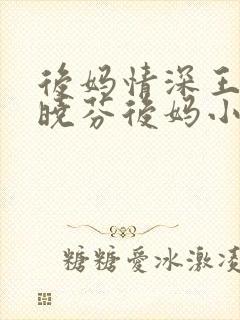 後妈情深王
晓芬後妈小
糖糖愛冰激凌